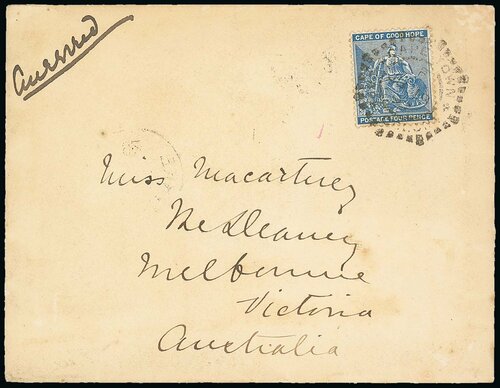 CAPE OF GOOD HOPE
POSTAGE FOUR PENCE
Miss Macartney
The Deanery
Melbourne
Victoria
Australia